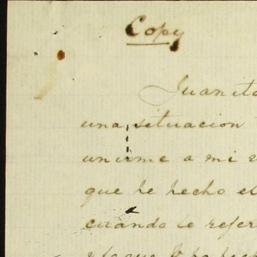 Copy
Juanita
una situacion
unirme a mi
que he hecho el
cuando le refer